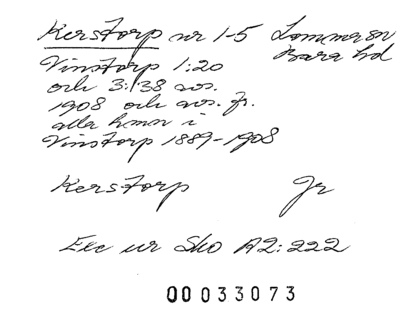 Kerstorp nr 1-5 Lommersn
Bara hd
Vinstorp 1:20
och 3:138 avs.
1908 och avs. fr.
alla hemn i
Vinstorp 1889-1908
Kerstorp Jr
Exc ur Sko A2:222
00033073